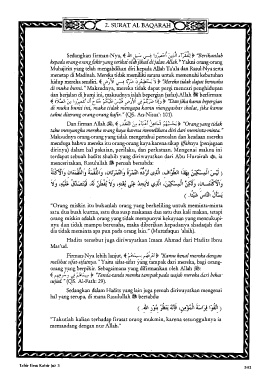 2. SURAT AL BAQARAH
Sedangkan firman-Nya, ﴾ لِلْفُقَرَاءِ الَّذِينَ أُحْصِرُوا فِي سَبِيلِ اللَّهِ ﴿ "(Berinfaklah
kepada orang-orang fakir yang terikat oleh jihad di jalan Allah." Yakni orang-orang
Muhajirin yang telah mengabdikan diri kepada Allah Ta'ala dan Rasul-Nya serta
menetap di Madinah. Mereka tidak memiliki sarana untuk memenuhi kebutuhan
hidup mereka sendiri. "Mereka tidak dapat berusaha
di muka bumi." Maksudnya, mereka tidak dapat pergi mencari penghidupan
dan berjalan di bumi ini, maksudnya ialah bepergian (jalan). Allah berfirman:
"Dan jika kamu bepergian
di muka bumi ini, maka tidak mengapa kamu mengqashar shalat, jika kamu
takut diserang orang-orang kafir." (QS. An-Nisaa': 101).
Dan firman Allah "Orang yang tidak
tahu menyangka mereka orang kaya karena memelihara diri dari meminta-minta."
Maksudnya orang-orang yang tidak mengetahui persoalan dan keadaan mereka
menduga bahwa mereka itu orang-orang kaya karena sikap iffahnya (penjagaan
dirinya) dalam hal pakaian, perilaku, dan perkataan. Mengenai makna ini
terdapat sebuah hadits shahih yang diriwayatkan dari Abu Hurairah, ia
menceritakan, Rasulullah pernah bersabda:
"Orang miskin itu bukanlah orang yang berkeliling untuk meminta-minta
satu dua buah kurma, satu dua suap makanan dan satu dua kali makan, tetapi
orang miskin adalah orang yang tidak mempunyai kekayaan yang mencukupi-
nya dan tidak mampu berusaha, maka diberikan kepadanya shadaqah dan
dia tidak meminta apa pun pada orang lain." (Muttafaqun 'alaih).
Hadits tersebut juga diriwayatkan Imam Ahmad dari Hadits Ibnu
Mas'ud.
Firman-Nya lebih lanjut, ﴾ تَعْرِفُهُم بِسِيمَاهُمْ ﴿ "Kamu kenal mereka dengan
melihat sifat-sifatnya." Yaitu sifat-sifat yang tampak dari mereka, bagi orang-
orang yang berpikir. Sebagaimana yang difirmankan oleh Allah
"Tanda-tanda mereka tampak pada wajah mereka dari bekas
sujud." (QS. Al-Fath: 29).
Sedangkan dalam Hadits yang lain juga pernah diriwayatkan mengenai
hal yang serupa, di mana Rasulullah bersabda:
( اتَّقُوا فِرَاسَةَ الْمُؤْمِنِ، فَإِنَّهُ يَنْظُرُ بِنُورِ اللَّهِ. )
"Takutlah kalian terhadap firasat orang mukmin, karena sesungguhnya ia
memandang dengan nur Allah."
Tafsir Ibnu Katsir Juz 3